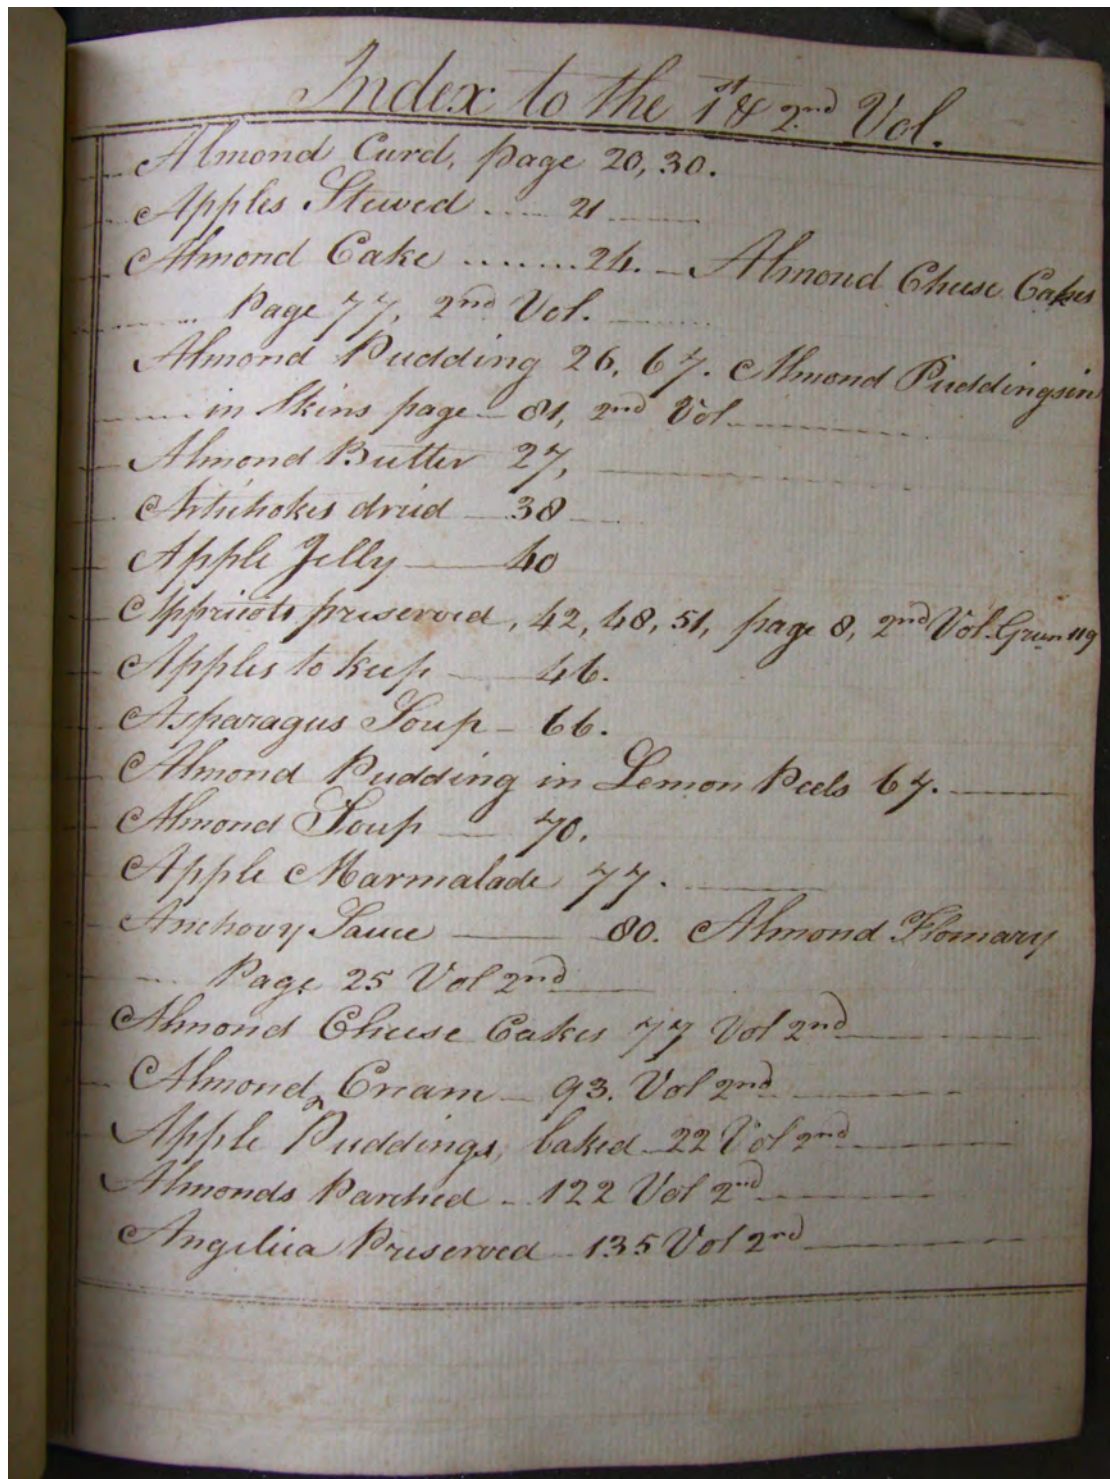 Index to the 1st & 2nd Vol.
Almond Curd, page 20, 30.
Apples Stewed .... 21
Almond Cake ....... 24. - Almond Cheese Cakes
Page 77, 2nd Vol.
Almond Pudding 26, 67. Almond Puddings in
in Skins page - 81, 2nd Vol
Almond Butter 27,
Artichokes dried 38
Apple Jelly 40
Appricots preserved, 42, 48, 51, page 8, 2nd Vol. Green 119
Apples to keep 46.
Asparagus Soup - 66.
Almond Pudding in Lemon Peels 67.
Almond Soup - 70.
Apple Marmalade 77.
Anchovy Sauce 80. Almond Flomary
Page 25 Vol 2nd
Almond Cheese Cakes 77 Vol 2nd
Almond Cream - 93. Vol 2nd
Apple Puddings, baked 22 Vol 2nd
Almonds Parched - 122 Vol 2nd
Angelica Preserved 135 Vol 2nd